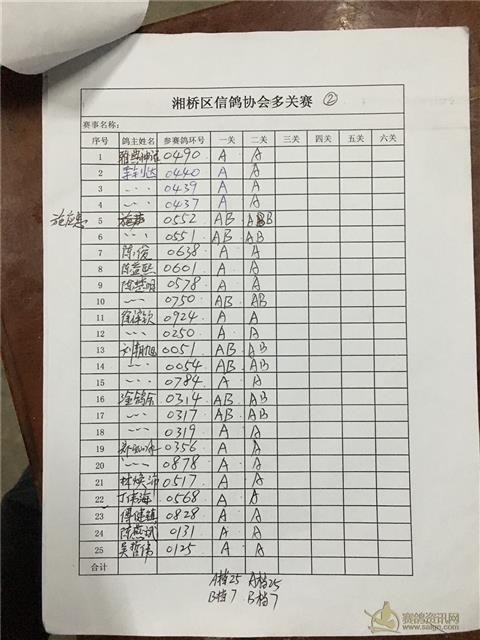 湘桥区信鸽协会多关赛 ②
赛事名称:
序号 鸽主姓名 参赛鸽环号 一关 二关 三关 四关 五关 六关
1 0490 A A
2 0440 A A
3 〃 0439 A A
4 〃 0437 A A
施应忠 5 0552 AB AB
6 〃 0551 AB AB
7 陈俊 0638 A A
8 陈益熙 0601 A A
9 陈楚明 0578 A A
10 〃 0750 AB AB
11 0924 A A
12 〃 0250 A A
13 刘朝旭 0051 AB AB
14 〃 0054 AB AB
15 〃 0784 A A
16 0314 AB AB
17 〃 0317 AB AB
18 〃 0319 A A
19 0356 A A
20 〃 0878 A A
21 林焕沛 0517 A A
22 丁伟海 0568 A A
23 傅健雄 0828 A A
24 陈燕斌 0131 A A
25 吴哲伟 0125 A A
合计
A档25 A档25
B档7 B档7
赛鸽资讯网
www.saige.com